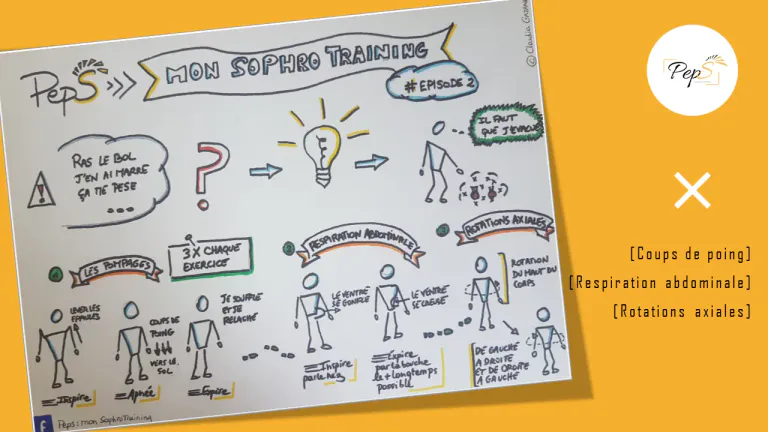 PepS
MON SOPHRO TRAINING
# EPISODE 2
© Claudia
RAS LE BOL
J'EN AI MARRE
ÇA ME PESE
...
?
IL FAUT
QUE J'EVACUE
3 X CHAQUE
EXERCICE
LES POMPAGES
LEVER LES
EPAULES
Inspire
COUPS DE
POING
VERS LE
SOL
Apnée
JE SOUFFLE
ET JE
RELACHE
Expire
RESPIRATION ABDOMINALE
LE VENTRE
SE GONFLE
Inspire
par le nez
LE VENTRE
SE BAISSE
Expire
par la bouche
le + longtemps
possible
ROTATIONS AXIALES
ROTATION
DU HAUT DU
CORPS
DE GAUCHE
A DROITE
ET DE DROITE
A GAUCHE
f
Peps : mon SophroTraining
PepS
[Coups de poing]
[Respiration abdominale]
[Rotations axiales]